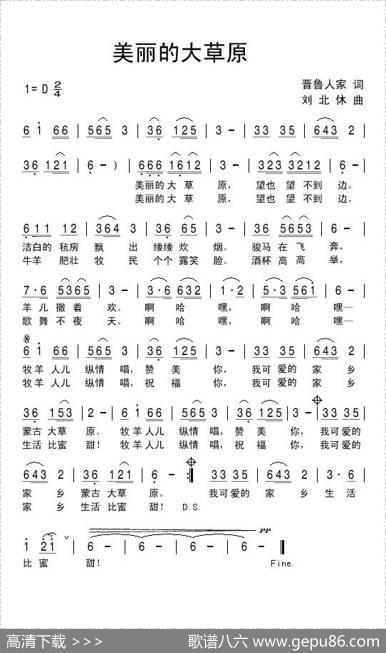 美丽的大草原
1=D 2/4
晋鲁人家 词
刘北休 曲
6 i 66 | 565 3 | 36 125 | 3 - | 33 35 | 643 2 |
36 121 | 6 - ) | 666 1612 | 3 - | 323 3212 | 6 - |
美丽的大 草 原, 望也 望 不到 边。
美丽的大 草 原, 望也 望 不到 边。
611 12 | 364 3 | 36 265 | 3 - | 36 5653 | 6 - |
洁白的 毡房 飘 出 缕缕 炊 烟。 骏马 在 飞 奔,
牛羊 肥壮 牧 民 个个 露笑 脸。 酒杯 高 高 举,
7·6 5365 | 3 - | 3·6 632 | 1·2 | 3·6 632 | 1·2 |
羊 儿 撒 着 欢。 啊 哈 嘿, 啊 哈 嘿—
歌 舞 不 夜 天。 啊 哈 嘿, 啊 哈 嘿—
6 i 66 | 565 3 | 36 125 | 3 - | 33 35 | 643 2 |
牧羊 人儿 纵情 唱, 赞 美 你, 我可 爱的 家 乡
牧羊 人儿 纵情 唱, 祝 福 你, 我可 爱的 家 乡
36 153 | 2 - | 6 i 66 | 565 3 | 36 125 | 3 - | 33 35 |
蒙古 大草 原。 牧羊 人儿 纵情 唱, 赞 美 你, 我可爱的
生活 比蜜 甜! 牧羊 人儿 纵情 唱, 祝 福 你, 我可爱的
643 2 | 36 121 | 6 - :| 33 35 | 643 2 | 3·6 |
家 乡 蒙古 大草 原。 我可爱的 家 乡 生活
家 乡 生活 比蜜 甜! D.S.
i 2i | 6 - | 6 - | 6 - | 6 - | 6 - ‖ pp
比 蜜 甜! Fine.
高清下载 >>>
歌谱八六 www.gepu86.com